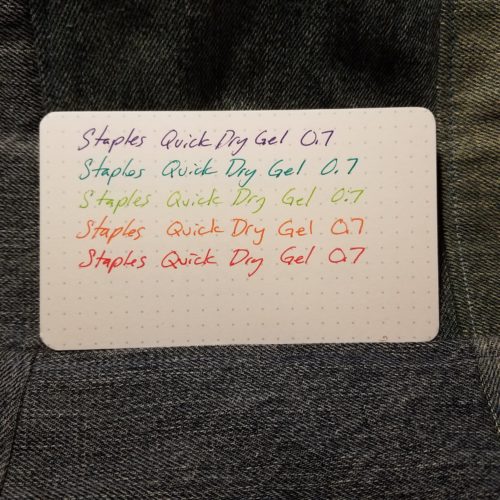 Staples Quick Dry Gel 0.7
Staples Quick Dry Gel 0.7
Staples Quick Dry Gel 0.7
Staples Quick Dry Gel 0.7
Staples Quick Dry Gel 0.7